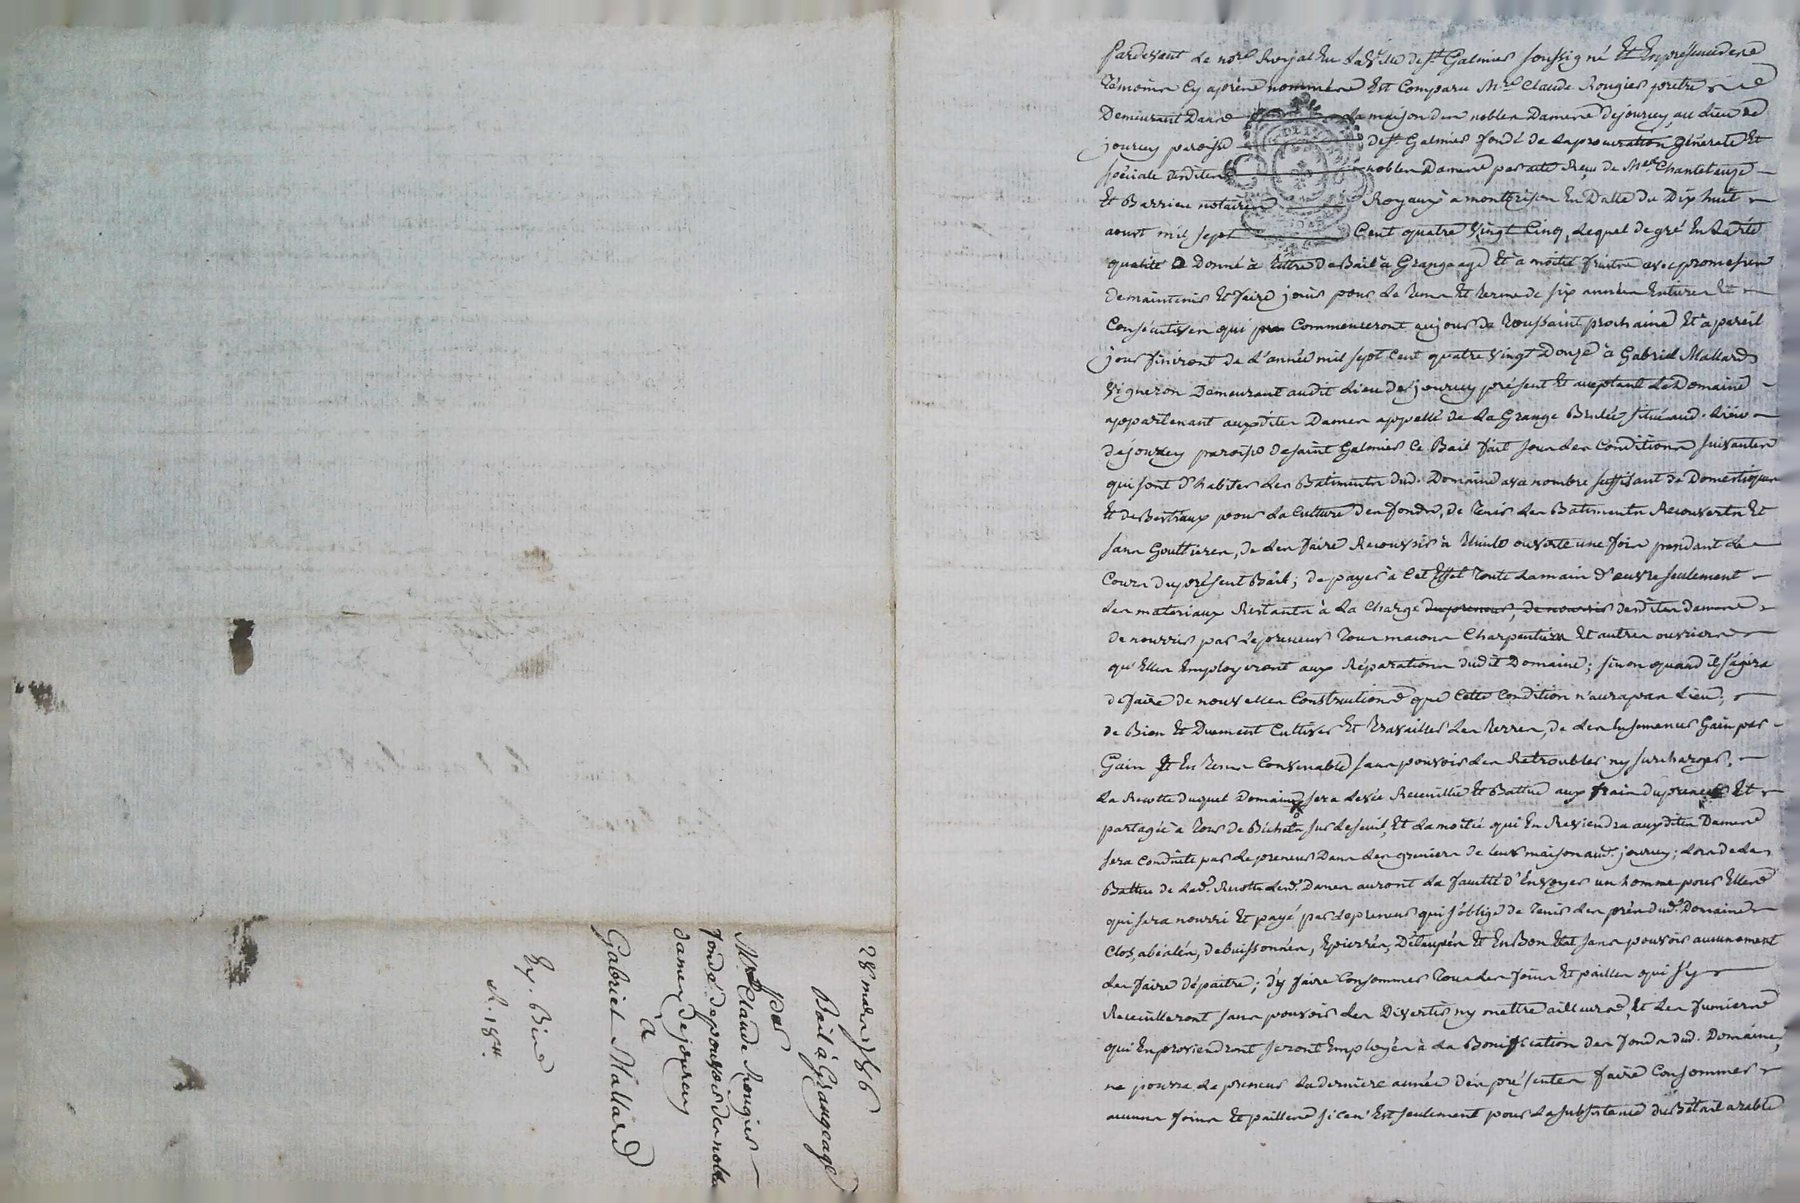 28 mars 1786
Bail à Grangeage
par
Mre Claude Rougier
fondé de pouvoir de nobles
dames de jourcey
à
Gabriel Mallard
Exp. Bine
R. 18
Pardevant le nore Royal En la ville de st Galmier soussigné Et En présence des
témoins Cy après nommés Est Comparu Mre Claude Rougier prêtre
Demeurant Dans la maison des nobles Dames de jourcey, au Lieu de
jourcey paroisse de st Galmier fondé de la procuration générale Et
spéciale desdites nobles Dames par acte Reçu de Mes Chantelauze
Et Barrieu notaires Royaux à montbrison En Datte du Dix huit
aoust mil sept Cent quatre vingt Cinq, Lequel de gré En sadte
qualité a Donné à titre de Bail à Grangeage Et à moitié fruits avec promesses
de maintenir Et faire jouir pour le tems Et terme de six années Entieres Et
Consécutives qui Commenceront au jour de toussaint prochaine Et à pareil
jour finiront de L'année mil sept Cent quatre vingt Douze à Gabriel Mallard
vigneron Demeurant audit Lieu de jourcey présent Et acceptant Le Domaine
appartenant auxdites Dames appellé de La Grange Brulée situé aud. Lieu
de jourcey paroisse de saint Galmier Ce Bail fait sous les Conditions suivantes
qui sont D'habiter les Batiments dud. Domaine avec nombre suffisant de Domestiques
Et de Bestiaux pour la Culture des fonds, de tenir les Batiments Recouverts Et
sans Gouttieres, de les faire Recouvrir à thuile ouverte une fois pendant le
Cours du présent Bail; de payer à Cet Effet toute la main d'œuvre seulement
les materiaux Restants à la Charge du preneur, de nourrir desdites dames
de nourrir par le preneur tous maçons Charpentiers Et autres ouvriers
qu'Elles Employeront aux Réparations dudit Domaine; sinon quand il s'agira
de faire de nouvelles Constructions que Cette Condition n'aura pas Lieu,
de Bien Et Duement Cultiver Et travailler les terres, de les Ensemencer Gain par
Gain Et En tems Convenable sans pouvoir les Retroubler ny surcharger,
La Recolte duquel Domaine sera Levée Recueillie Et Battue aux frais du preneur Et
partagée à tour de Bichets sur le seuil, Et la moitié qui En Reviendra auxdites Dames
sera Conduite par le preneur Dans les greniers de leur maison aud. jourcey; lors de la
Battue de lade Recolte lesd. Dames auront la faculté d'Envoyer un homme pour Elles
qui sera nourri Et payé par le preneur qui s'oblige de tenir les prés dud. Domaine
Clos, abéalés, debuissonnés, Epierrés, Détaupés Et En Bon Etat sans pouvoir aucunement
les faire dépaitre; d'y faire Consommer tous les foins Et pailles qui s'y
Recueilleront sans pouvoir les Divertir ny mettre ailleurs, Et les fumiers
qui En proviendront seront Employés à la Bonification des fonds dud. Domaine,
ne pourra le preneur la derniere année des présentes faire Consommer
aucuns foins Et pailles si ce n'Est seulement pour la subsistance du Bétail arable